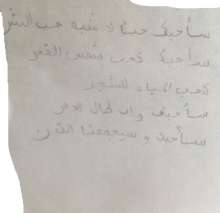 سأحبك حبا لا يشبه حب البشر
سأحبك كحب شمس القمر
كحب المياه للشجر
سأحبك وان طال
سأحبك و سيجمعنا القدر